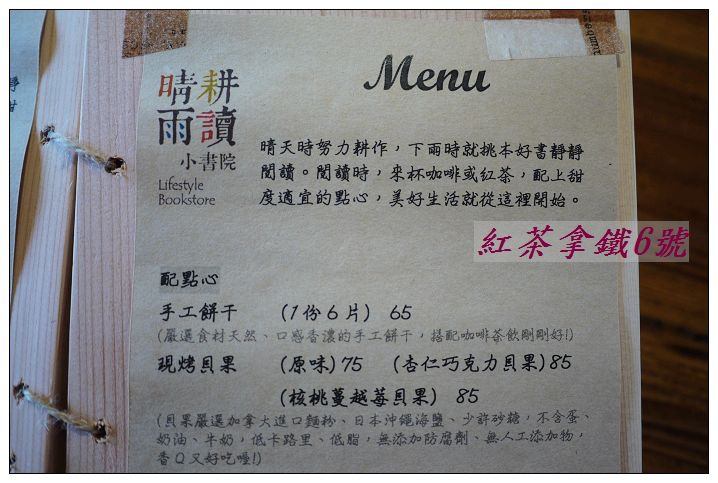 numbers
Menu
晴耕
雨讀
小書院
Lifestyle
Bookstore
晴天時努力耕作，下雨時就挑本好書靜靜
閱讀。閱讀時，來杯咖啡或紅茶，配上甜
度適宜的點心，美好生活就從這裡開始。
紅茶拿鐵6號
配點心
手工餅干 (1份6片) 65
(嚴選食材天然、口感香濃的手工餅干，搭配咖啡茶飲剛剛好!)
現烤貝果 (原味)75 (杏仁巧克力貝果)85
(核桃蔓越莓貝果) 85
(貝果嚴選加拿大進口麵粉、日本沖繩海鹽、少許砂糖，不含蛋、
奶油、牛奶，低卡路里、低脂，無添加防腐劑、無人工添加物，
香Q又好吃喔!)